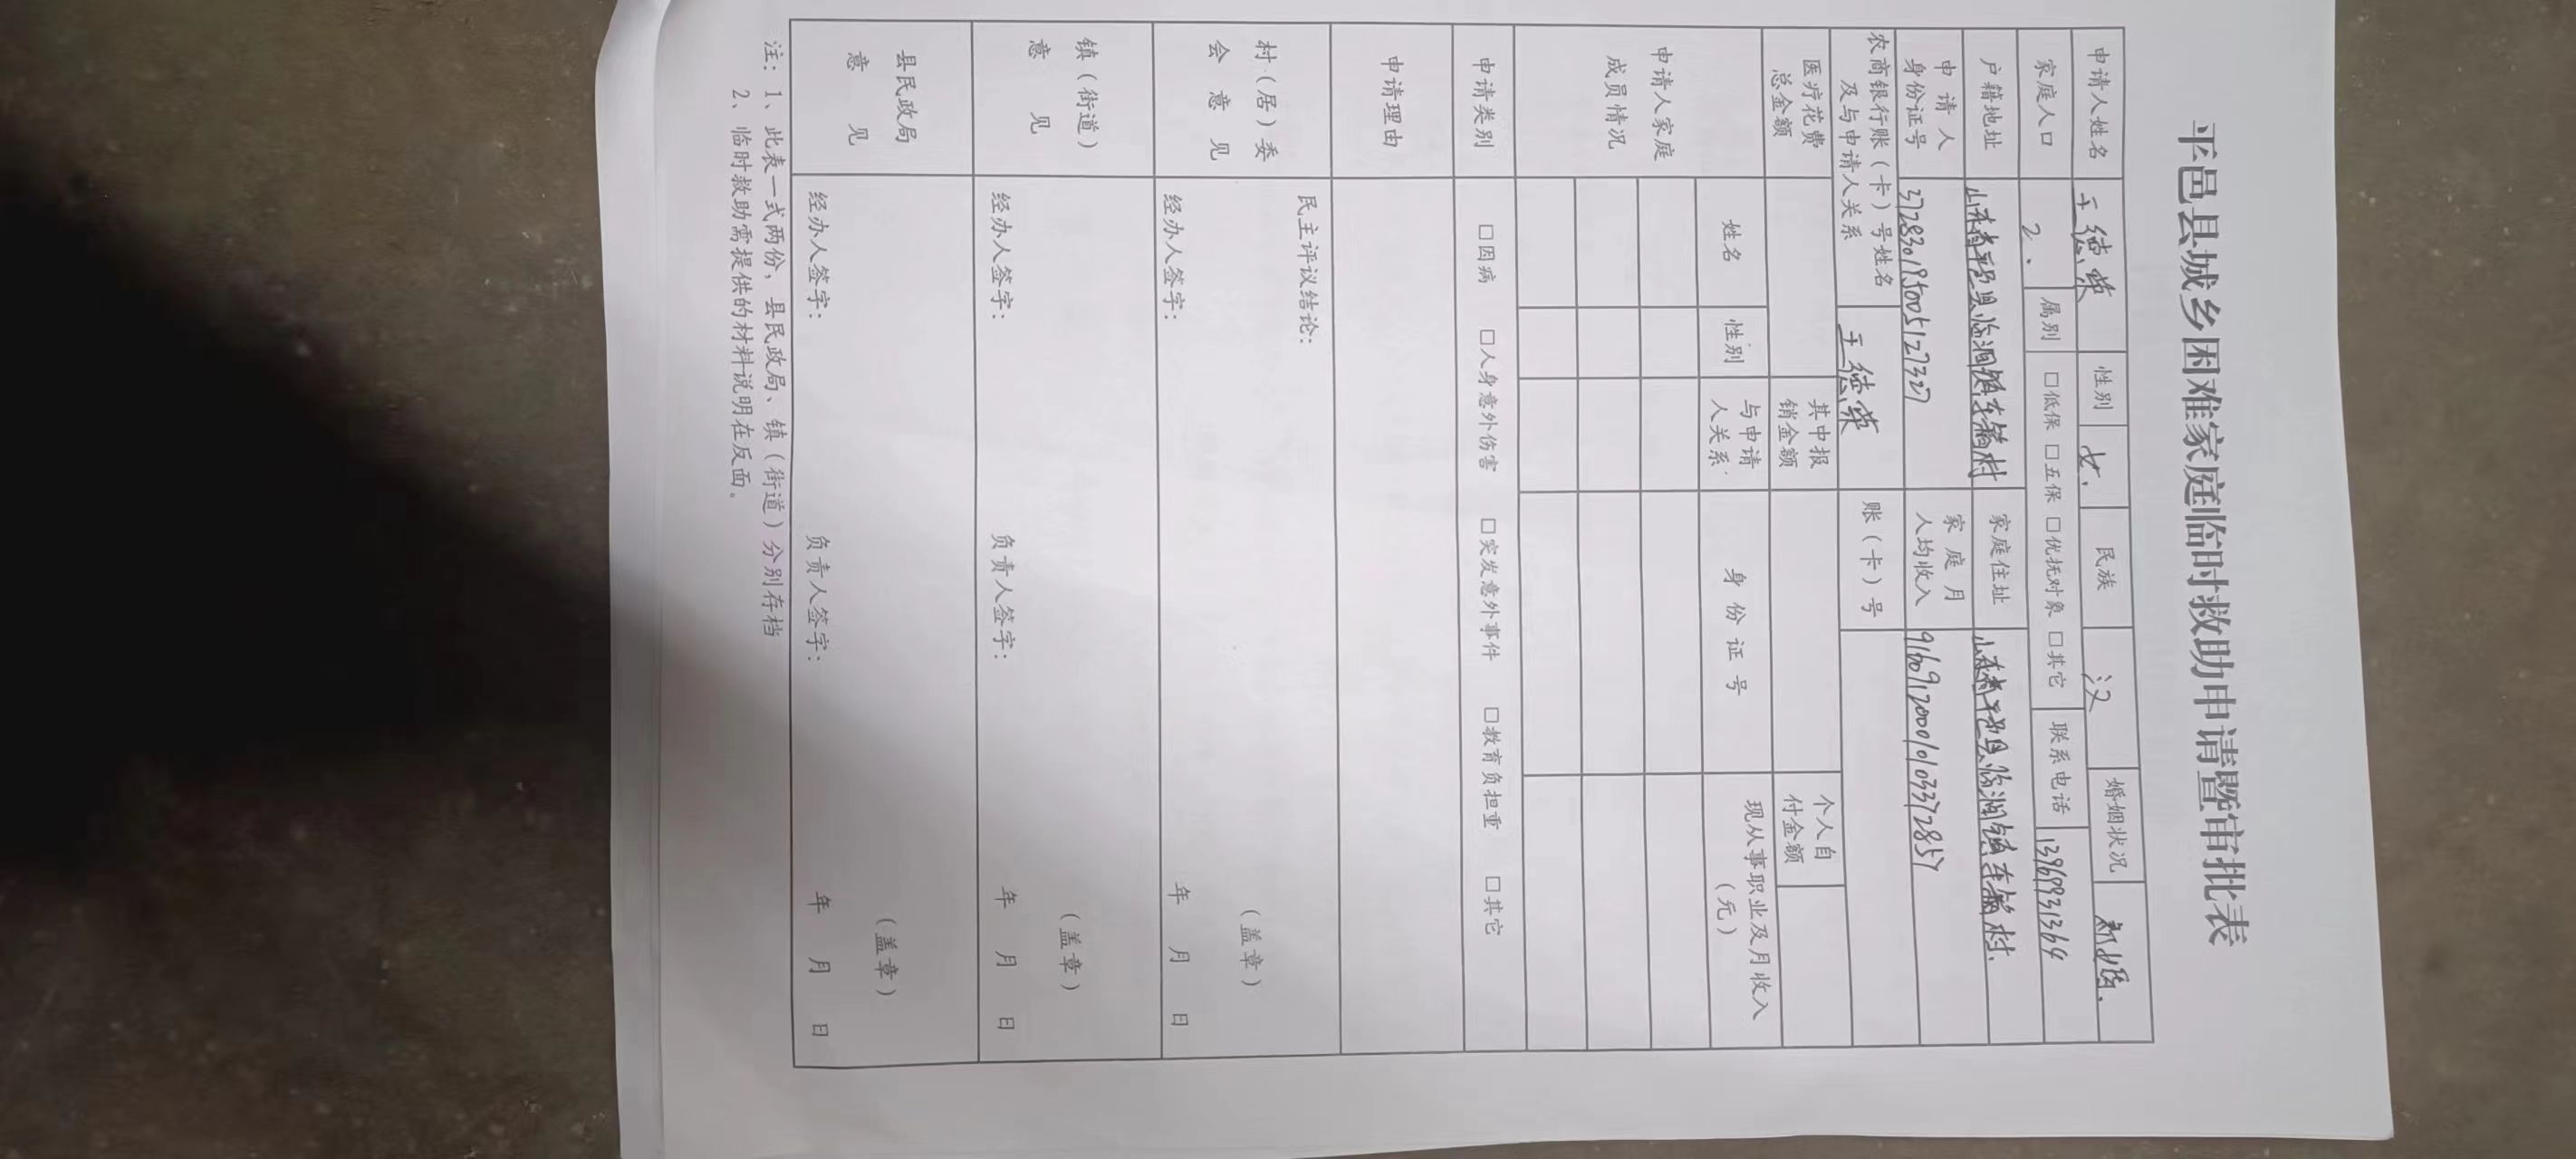 平邑县城乡困难家庭临时救助申请暨审批表
申请人姓名 王德荣 性别 女. 民族 汉 婚姻状况
家庭人口 2. 属别 □低保 □五保 □优抚对象 □其它 联系电话 13969931364
户籍地址 山东省平邑县临涧镇车辋村 家庭住址 山东省平邑县临涧镇车辋村.
申请人
身份证号 372830195005127327 家庭月
人均收入 91609120001010337285
农商银行账(卡)号姓名
及与申请人关系 王德荣 账(卡)号
医疗花费
总金额 其中报
销金额 个人自
付金额
申请人家庭
成员情况
姓名 性别 与申请
人关系 身份证号 现从事职业及月收入
(元)
申请类别 □因病 □人身意外伤害 □突发意外事件 □教育负担重 □其它
申请理由
村(居)委
会意见
民主评议结论:
(盖章)
经办人签字: 年 月 日
镇(街道)
意见
(盖章)
经办人签字: 负责人签字: 年 月 日
县民政局
意见
(盖章)
经办人签字: 负责人签字: 年 月 日
注: 1、此表一式两份, 县民政局、镇(街道)分别存档
2、临时救助需提供的材料说明在反面。